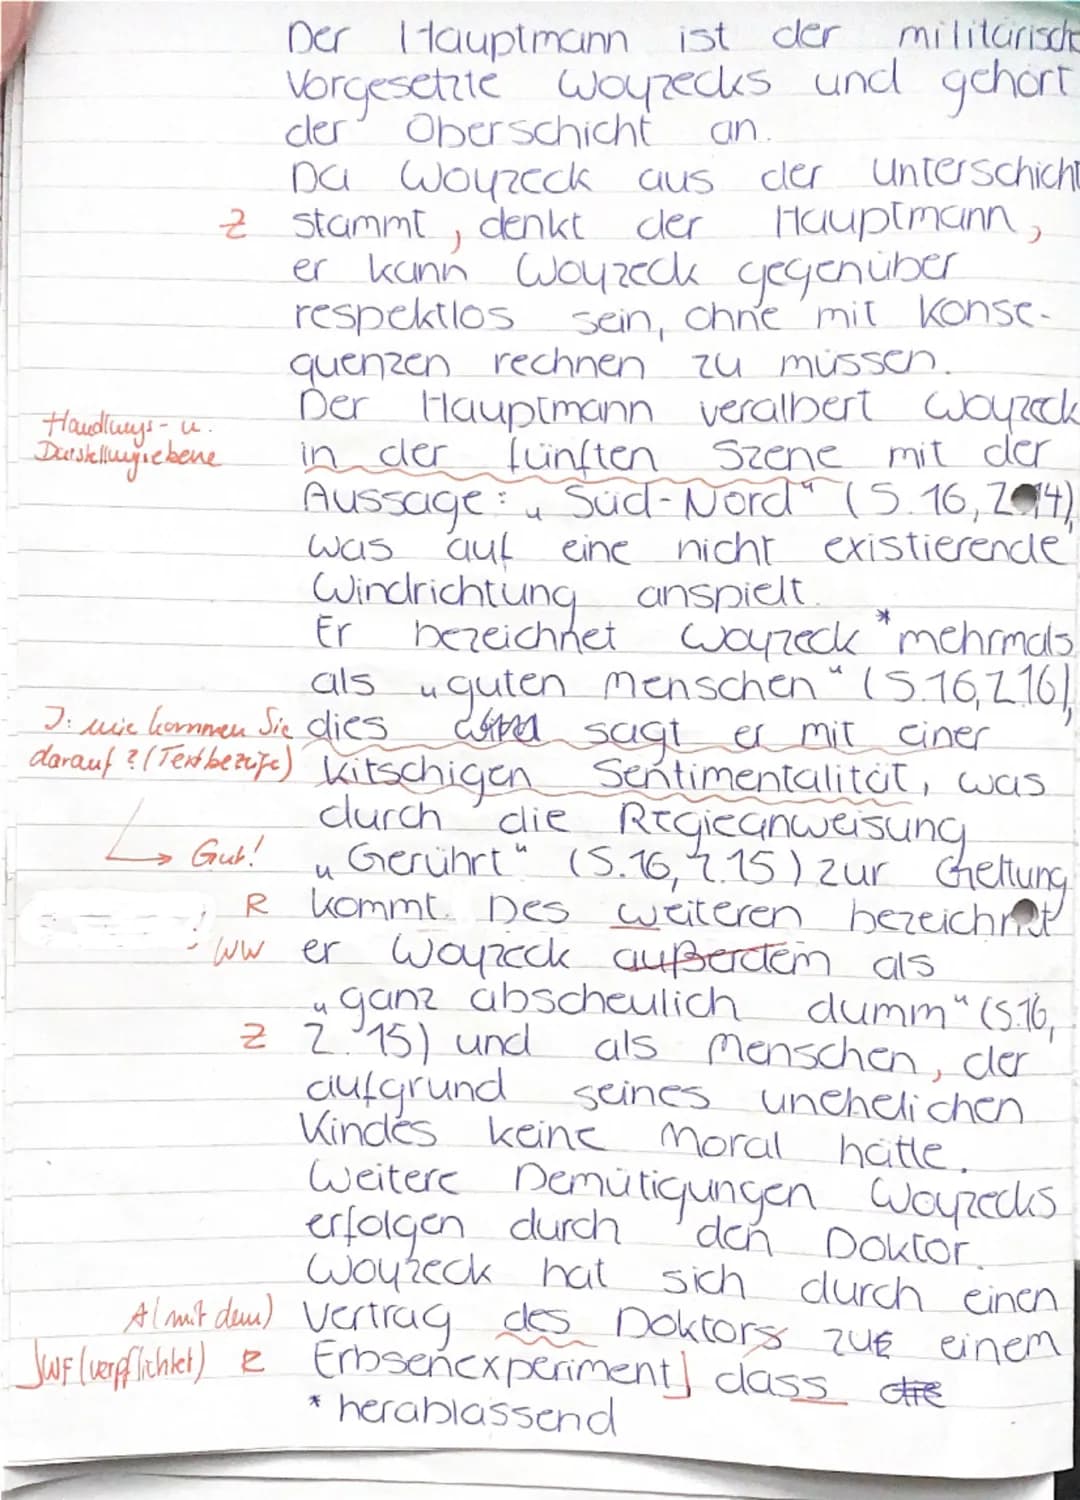 Der Hauptmann ist der militärische
Vorgesetzte Woyzecks und gehört
der Oberschicht an.
Da Woyzeck aus der Unterschicht
Z stammt, denkt der Hauptmann,
er kann Woyzeck gegenüber
respektlos sein, ohne mit Konse-
quenzen rechnen zu müssen.
Der Hauptmann veralbert Woyzeck
Handlungs- u.
Darstellungsebene
in der fünften Szene mit der
Aussage: „Süd-Nord" (S. 16, Z. 14),
was auf eine nicht existierende
Windrichtung anspielt.
Er bezeichnet Woyzeck *mehrmals
als „guten Menschen" (S.16, Z.16),
J: wie kommen Sie
darauf? (Textbezüge)
dies sagt er mit einer
kitschigen Sentimentalität, was
durch die Regieanweisung
→ Gut! „Gerührt" (S.16, Z.15) zur Geltung
R kommt. Des weiteren bezeichnet
WW er Woyzeck außerdem als
„ganz abscheulich dumm" (S.16,
Z Z. 15) und als Menschen, der
aufgrund seines unehelichen
Kindes keine Moral hätte.
Weitere Demütigungen Woyzecks
erfolgen durch den Doktor.
Woyzeck hat sich durch einen
A (mit dem) Vertrag des Doktors zu einem
WF (verpflichtet) R Erbsenexperiment, dass die
* herablassend